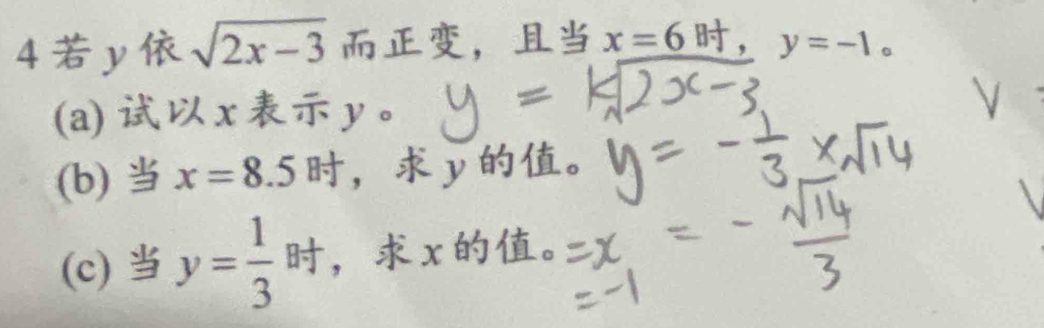 4 若 y 依 √(2x-3) 而正变，且当 x=6 时，y=-1。
(a) 试以 x 表示 y。 y = k√(2x-3)
(b) 当 x=8.5 时，求 y 的值。 y = -1/3 ×√14
= -√14/3
(c) 当 y=1/3 时，求 x 的值。 =x
=-1